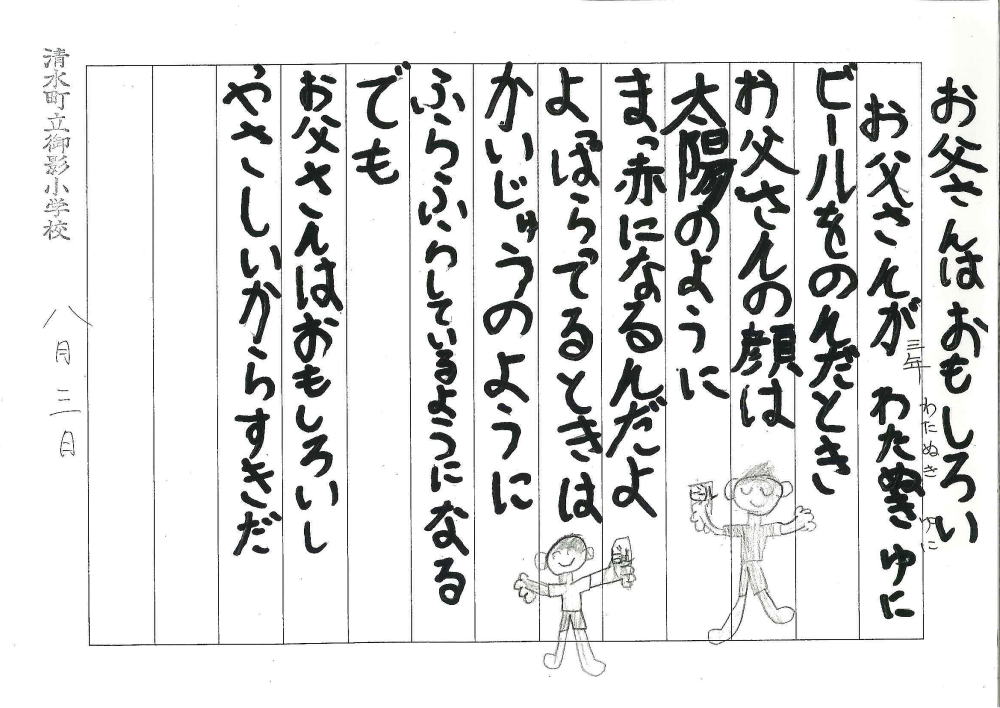 お父さんは おもしろい
三年 わたぬき ゆに
お父さんが わたぬき ゆに
ビールをのんだとき
お父さんの顔は
太陽のように
まっ赤になるんだよ
よっぱらってるときは
かいじゅうのように
ふらふらしているようになる
でも
お父さんはおもしろいし
やさしいからすきだ
清水町立御影小学校 八月三日
ビール